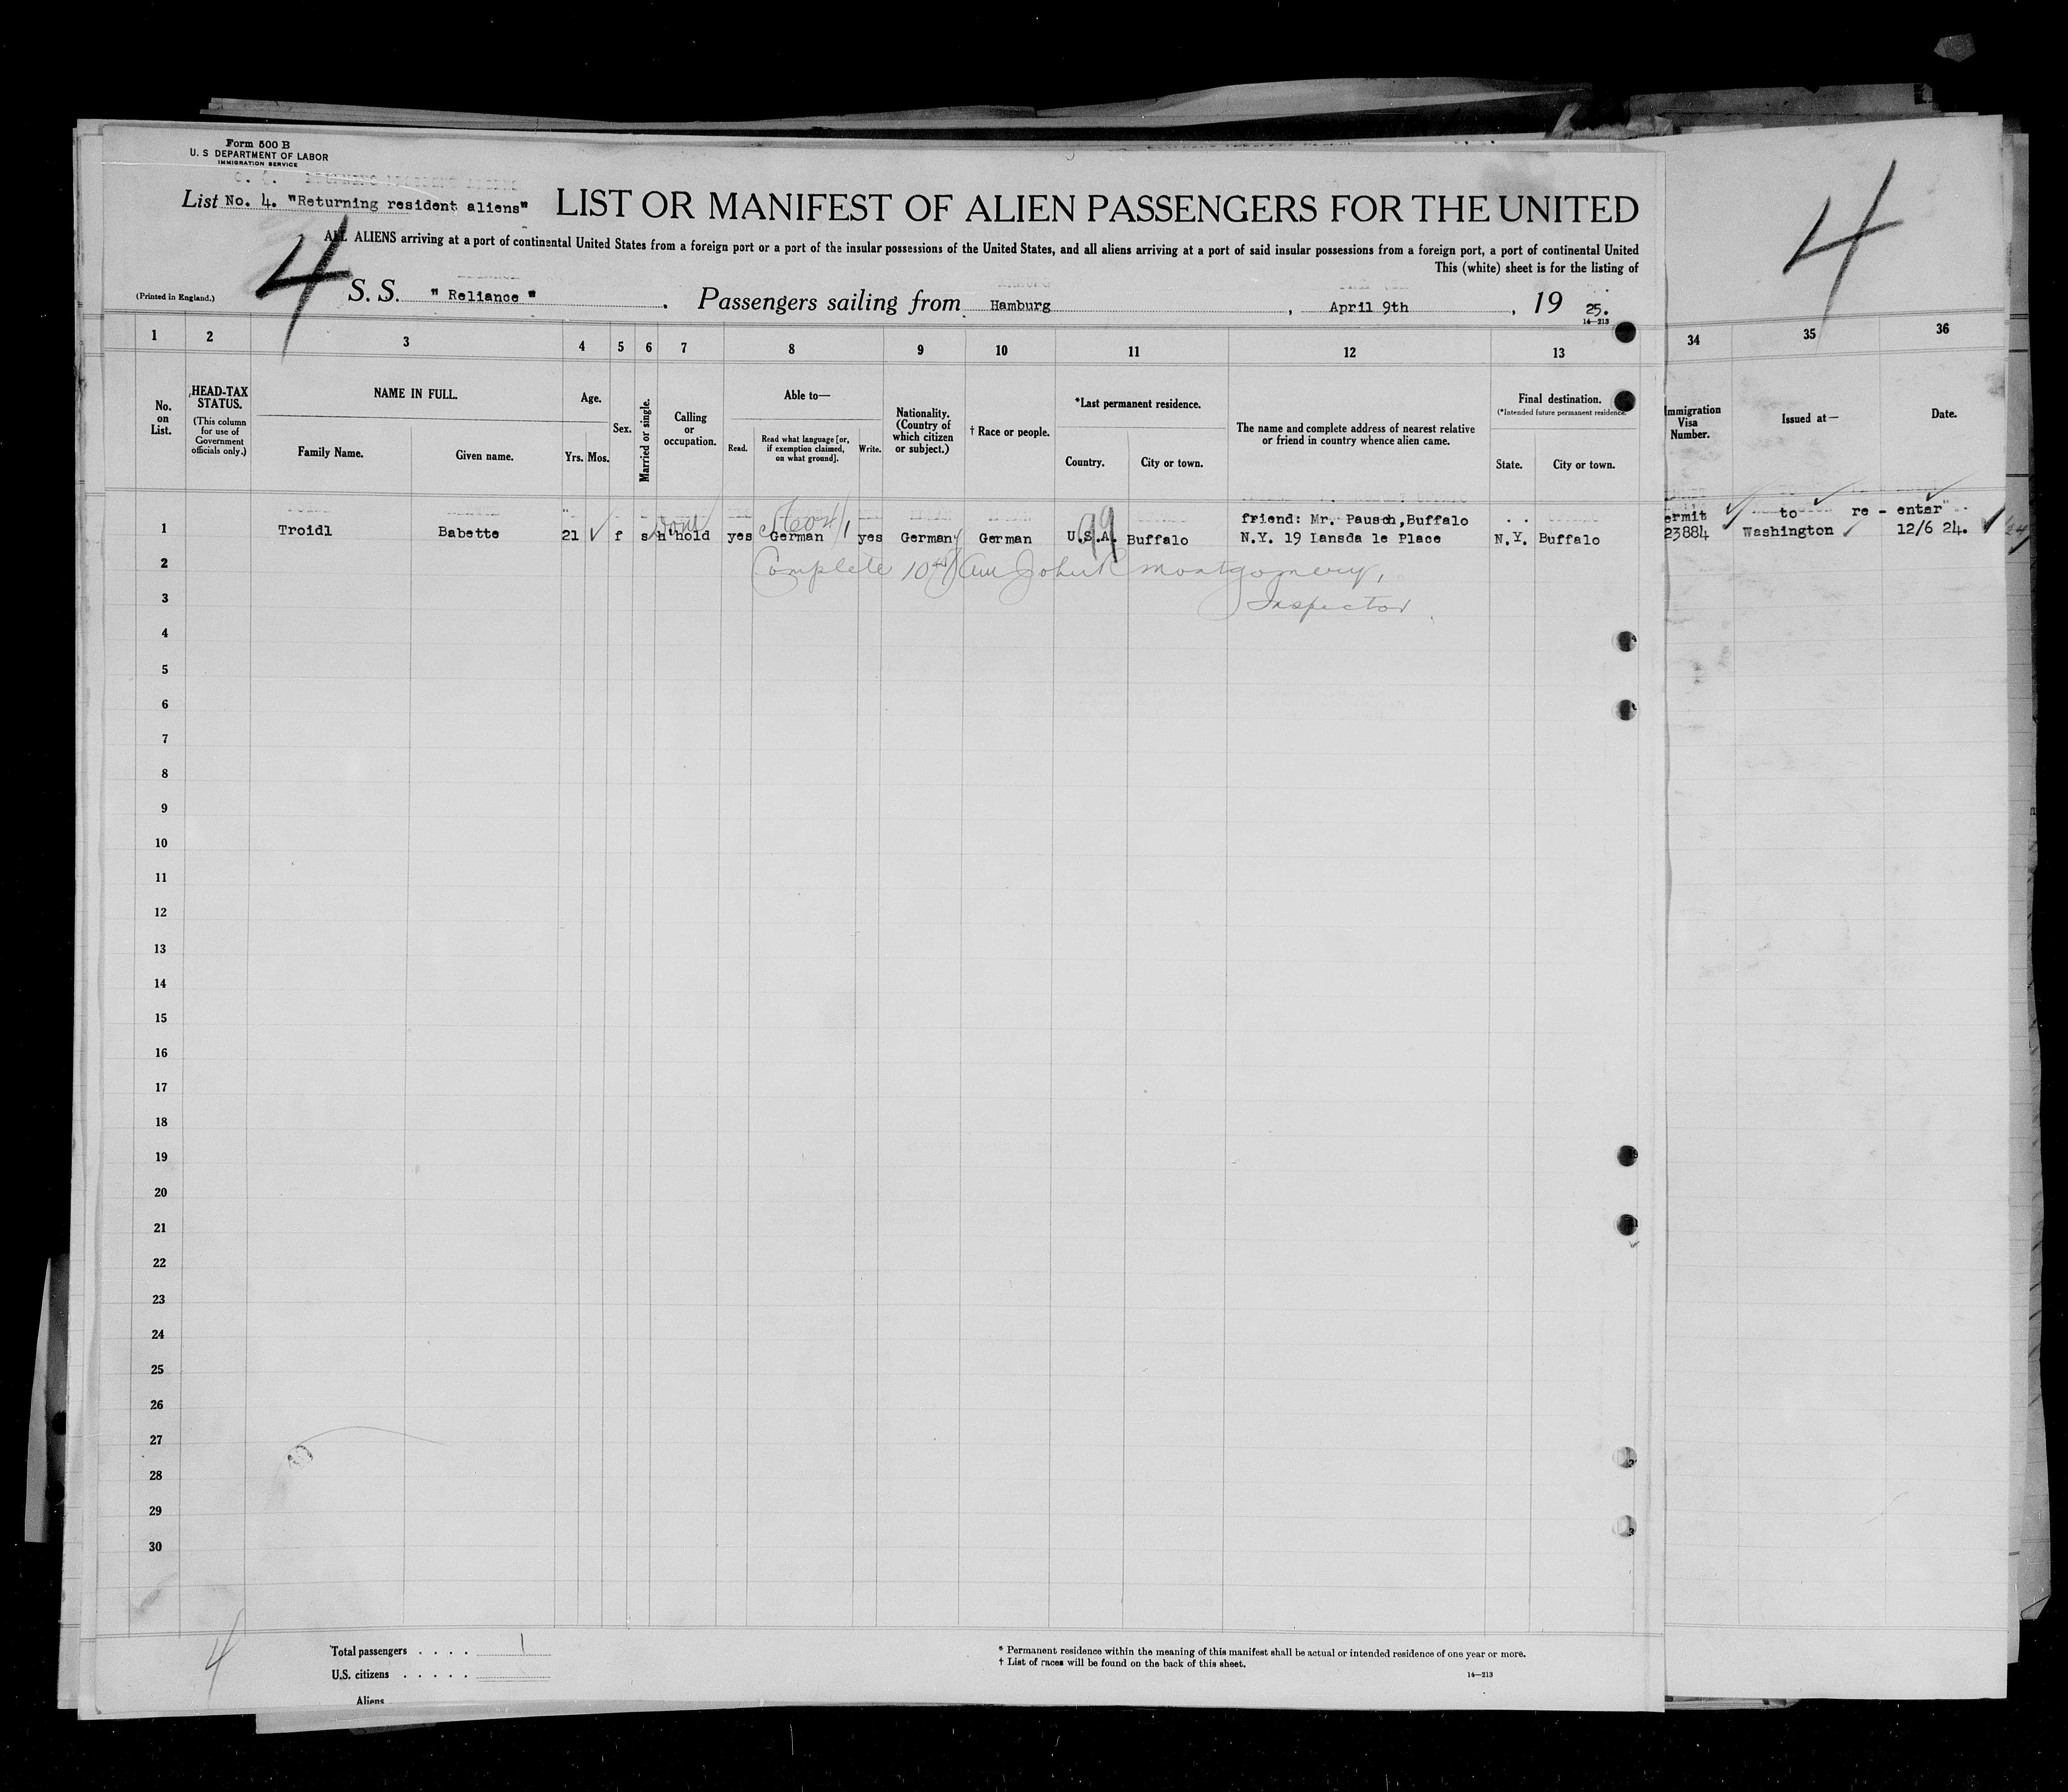 Form 500 B
U. S DEPARTMENT OF LABOR
IMMIGRATION SERVICE
List No. 4. "Returning resident aliens"
LIST OR MANIFEST OF ALIEN PASSENGERS FOR THE UNITED
ALL ALIENS arriving at a port of continental United States from a foreign port or a port of the insular possessions of the United States, and all aliens arriving at a port of said insular possessions from a foreign port, a port of continental United
This (white) sheet is for the listing of
4
4
(Printed in England.)
S. S. " Reliance " . Passengers sailing from Hamburg , April 9th , 19 25.
14—213
1 2 3 4 5 6 7 8 9 10 11 12 13 34 35 36
No. on List.
HEAD-TAX STATUS.
(This column for use of Government officials only.)
NAME IN FULL.
Family Name. Given name.
Age.
Yrs. Mos.
Sex.
Married or single.
Calling or occupation.
Able to—
Read. Read what language [or, if exemption claimed, on what ground]. Write.
Nationality. (Country of which citizen or subject.)
† Race or people.
*Last permanent residence.
Country. City or town.
The name and complete address of nearest relative or friend in country whence alien came.
Final destination.
(*Intended future permanent residence.
State. City or town.
Immigration Visa Number.
Issued at—
Date.
friend: Mr. Pausch,Buffalo
ermit to re - enter"
1 Troidl Babette 21 f s h'hold yes German yes Germany German U.S.A. Buffalo N.Y. 19 Lansda le Place N.Y. Buffalo 23884 Washington 12/6 24.
dom
99
2 Complete
John Montgomery,
3 Inspector
4
5
6
7
8
9
10
11
12
13
14
15
16
17
18
19
20
21
22
23
24
25
26
27
28
29
30
4
Total passengers . . . . 1
U.S. citizens . . . . .
Aliens
* Permanent residence within the meaning of this manifest shall be actual or intended residence of one year or more.
† List of races will be found on the back of this sheet.
14—213